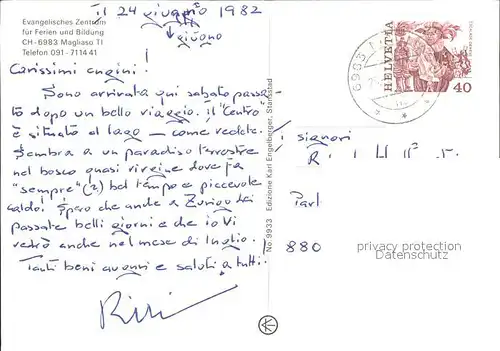 il 24 giugno 1982
giugno
Evangelisches Zentrum
für Ferien und Bildung
CH-6983 Magliaso TI
Telefon 091-71 14 41
Carissimi cugini!
Sono arrivata qui sabato passa-
to dopo un bello viaggio. Il "Centro"
è situato al lago – come vedete.
Sembra a un paradiso terrostre
nel bosco quasi vergine dove fa
"sempre" (2) bel tempo e piccevole
caldo! Spero che anche a Zurigo Lei
passate belli giorni e che io Vi
vedrò anche nel mese di luglio.
Tanti beni auguri e saluti a tutti!
No. 9933 Edizione Karl Engelberger, Stansstad
HELVETIA
40
6983
i signori
R
Parl
880
privacy protection
Datenschutz